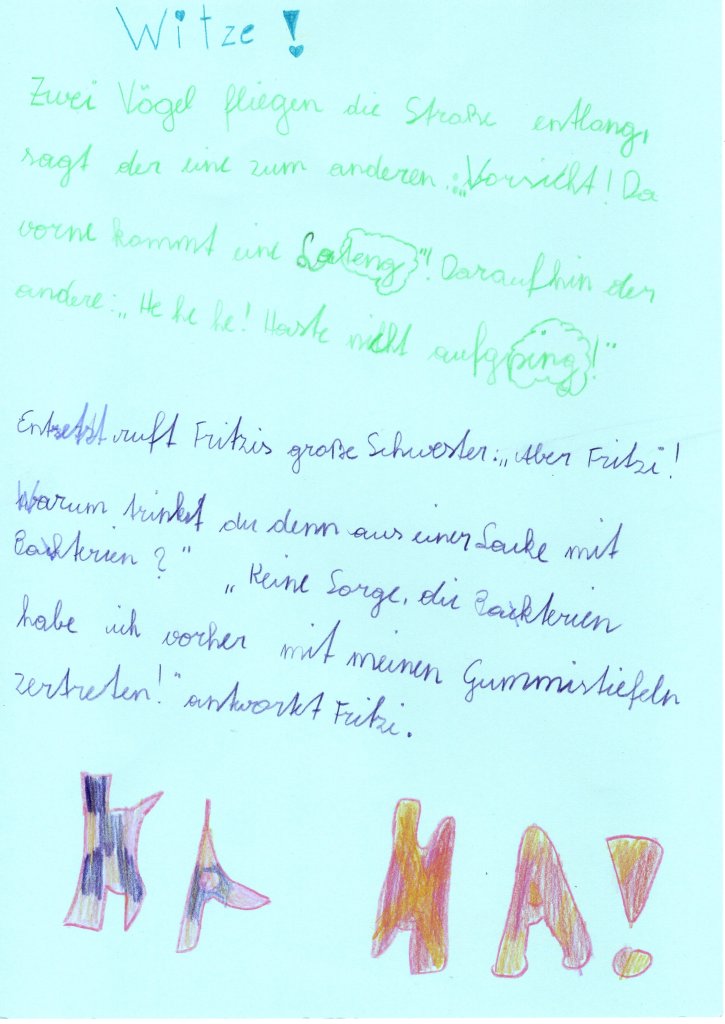 Witze!
Zwei Vögel fliegen die Straße entlang,
sagt der eine zum anderen: „Vorsicht! Da
vorne kommt eine Lateng"! Daraufhin der
andere: „He he he! Haste nicht aufgeping!"
Entsetzt ruft Fritzis große Schwester: „Aber Fritzi!
Warum trinkst du denn aus einer Lacke mit
Backterien?" „Keine Sorge, die Backterien
habe ich vorher mit meinen Gummistiefeln
zertreten!" antwortet Fritzi.
HA HA!